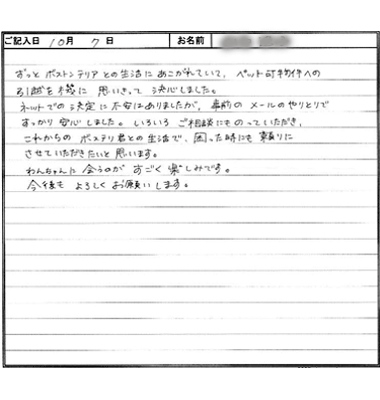 ご記入日 10月 7日 お名前
ずっとボストンテリアとの生活にあこがれていて、ペット可物件への
引越を機に思いきって決心しました。
ネットでの決定に不安はありましたが、事前のメールのやりとりで
すっかり安心しました。いろいろご相談にものっていただき、
これからのボステリ君との生活で、困った時にも頼りに
させていただきたいと思います。
わんちゃんに会うのがすごく楽しみです。
今後もよろしくお願いします。